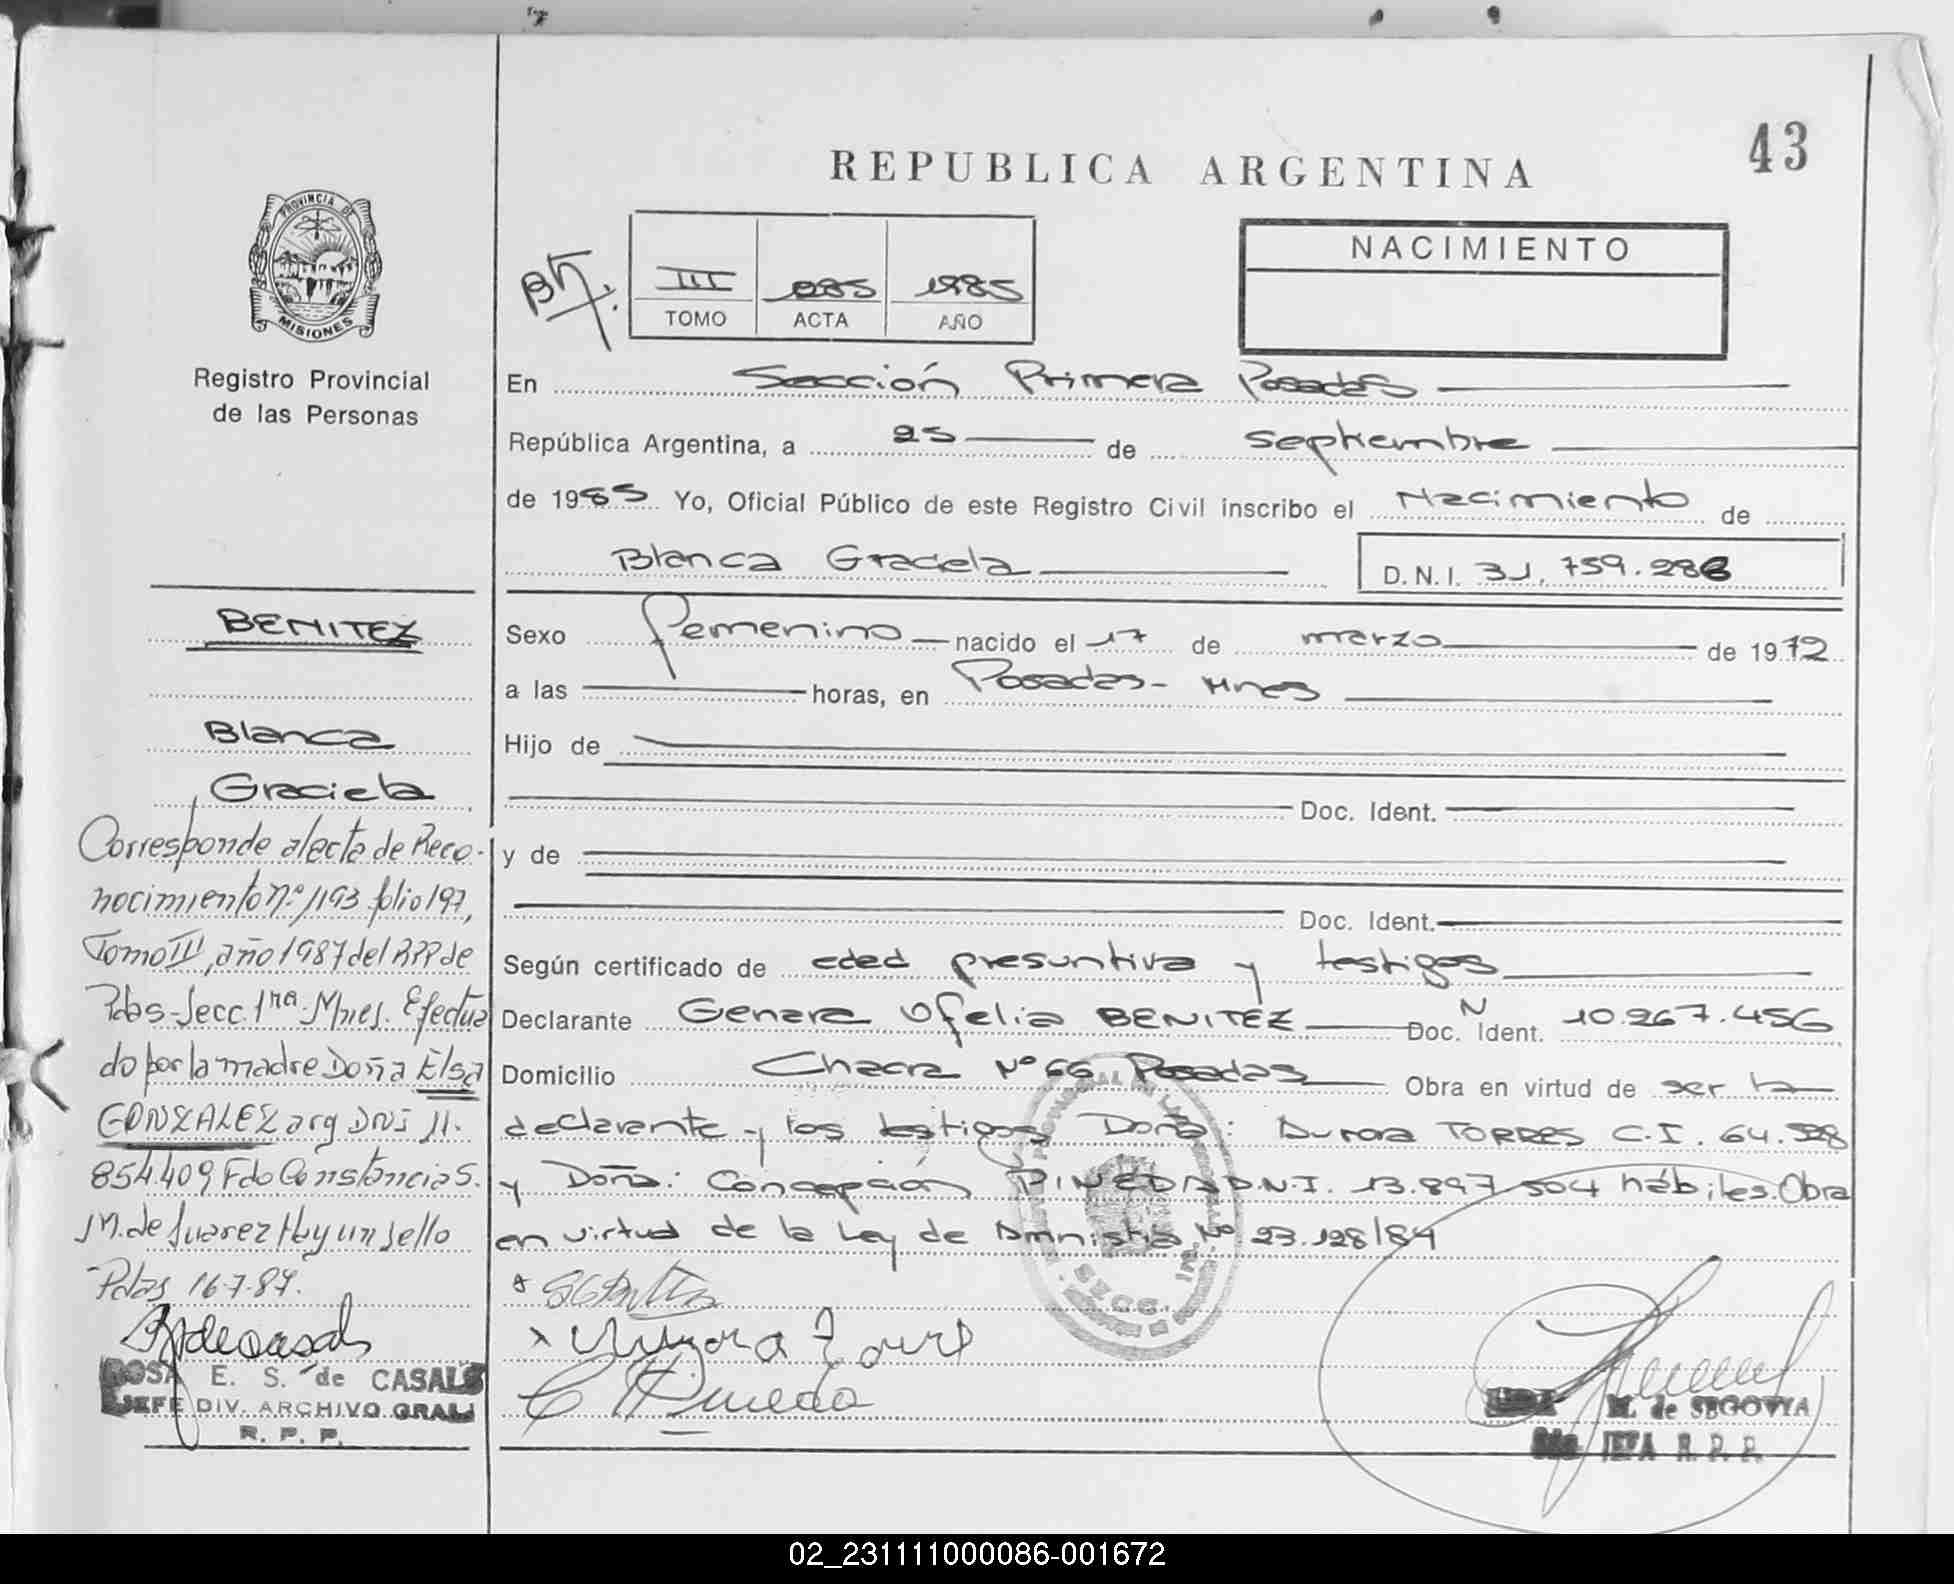 43
REPUBLICA ARGENTINA
PROVINCIA DE
MISIONES
Registro Provincial
de las Personas
III 985 1985
TOMO ACTA AÑO
NACIMIENTO
En Sección Primera Posadas
República Argentina, a 25 de septiembre
de 1985 Yo, Oficial Público de este Registro Civil inscribo el Nacimiento de
Blanca Graciela D.N.I. 31.759.286
Sexo femenino nacido el 17 de marzo de 1972
a las horas, en Posadas - Mnes
Hijo de
Doc. Ident.
y de
Doc. Ident.
Según certificado de edad presuntiva y testigos
Declarante Genara Ofelia BENITEZ Doc. N Ident. 10.267.456
Domicilio Chacra Nº 66 Posadas Obra en virtud de ser la
declarante y los testigos Doña: Aurora TORRES C.I. 64.528
y Doña: Concepción PINEDA D.N.I. 13.897 504 hábiles. Obra
en virtud de la Ley de Amnistia Nº 23.128/84
Aurora Torres
C Pineda
M. de SEGOVIA
JEFA R. P. P.
BENITEZ
Blanca
Graciela
Corresponde al acta de Reco-
nocimiento nº 1193 folio 197,
Tomo III, año 1987 del RPP de
Pdas-Secc. 1ra. Mnes. Efectua
do por la madre Doña Elsa
GONZALEZ arg DNI 11.
854.409 Fdo Constancia S.
M. de Suarez Hay un sello
Pdas 16-7-87.
ROSA E. S. de CASALS
JEFE DIV. ARCHIVO GRAL
R. P. P.
02_231111000086-001672